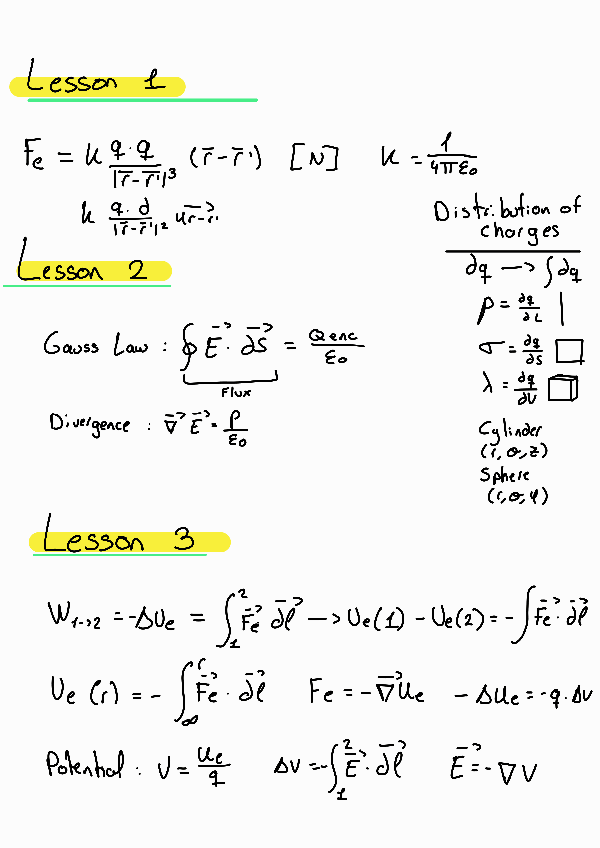 Lesson 1
Fe = k q·q / |r̅-r̅'|³ (r̅-r̅') [N] k = 1 / 4πε₀
k q·∂ / |r̅-r̅'|² u r-r'
Distribution of
charges
∂q → ∫∂q
ρ = ∂q/∂L
σ = ∂q/∂S
λ = ∂q/∂V
Cylinder
(r, θ, z)
Sphere
(r, θ, φ)
Lesson 2
Gauss Law : ∮ E⃗ · ∂S⃗ = Qenc / ε₀
Flux
Divergence : ∇⃗ E⃗ = ρ / ε₀
Lesson 3
W₁→₂ = -ΔUe = ∫₁² Fe⃗ ∂l⃗ → Ue(1) - Ue(2) = -∫ Fe⃗ · ∂l⃗
Ue (r) = - ∫∞ʳ Fe⃗ · ∂l⃗ Fe = -∇⃗Ue -ΔUe = -q·ΔV
Potential : V = Ue / q ΔV = -∫₁² E⃗ · ∂l⃗ E⃗ = -∇V